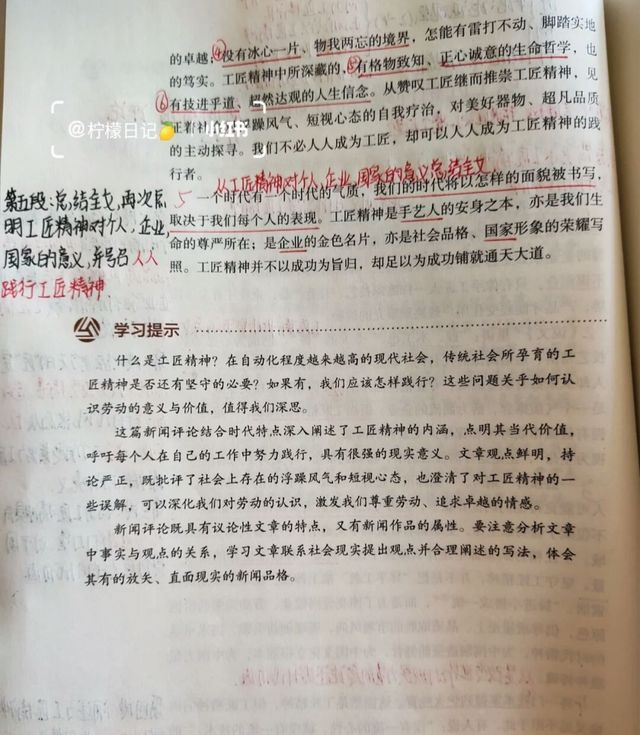 的卓越;④没有冰心一片、物我两忘的境界,怎能有雷打不动、脚踏实地
的笃实。工匠精神中所深藏的,⑤有格物致知、正心诚意的生命哲学,也
⑥有技进乎道、超然达观的人生信念。从赞叹工匠继而推崇工匠精神,见
证着社会对浮躁风气、短视心态的自我疗治,对美好器物、超凡品质
的主动探寻。我们不必人人成为工匠,却可以人人成为工匠精神的践
行者。
@柠檬日记🍋 小红书
从工匠精神对个人、企业、国家的意义总结全文
5 一个时代有一个时代的气质,我们的时代将以怎样的面貌被书写,
取决于我们每个人的表现。工匠精神是手艺人的安身之本,亦是我们生
命的尊严所在;是企业的金色名片,亦是社会品格、国家形象的荣耀写
照。工匠精神并不以成功为旨归,却足以为成功铺就通天大道。
第五段:总结全文,再次点
明工匠精神对个人,企业,
国家的意义,并号召人人
践行工匠精神.
学习提示
什么是工匠精神?在自动化程度越来越高的现代社会,传统社会所孕育的工
匠精神是否还有坚守的必要?如果有,我们应该怎样践行?这些问题关乎如何认
识劳动的意义与价值,值得我们深思。
这篇新闻评论结合时代特点深入阐述了工匠精神的内涵,点明其当代价值,
呼吁每个人在自己的工作中努力践行,具有很强的现实意义。文章观点鲜明,持
论严正,既批评了社会上存在的浮躁风气和短视心态,也澄清了对工匠精神的一
些误解,可以深化我们对劳动的认识,激发我们尊重劳动、追求卓越的情感。
新闻评论既具有议论性文章的特点,又有新闻作品的属性。要注意分析文章
中事实与观点的关系,学习文章联系社会现实提出观点并合理阐述的写法,体会
其有的放矢、直面现实的新闻品格。